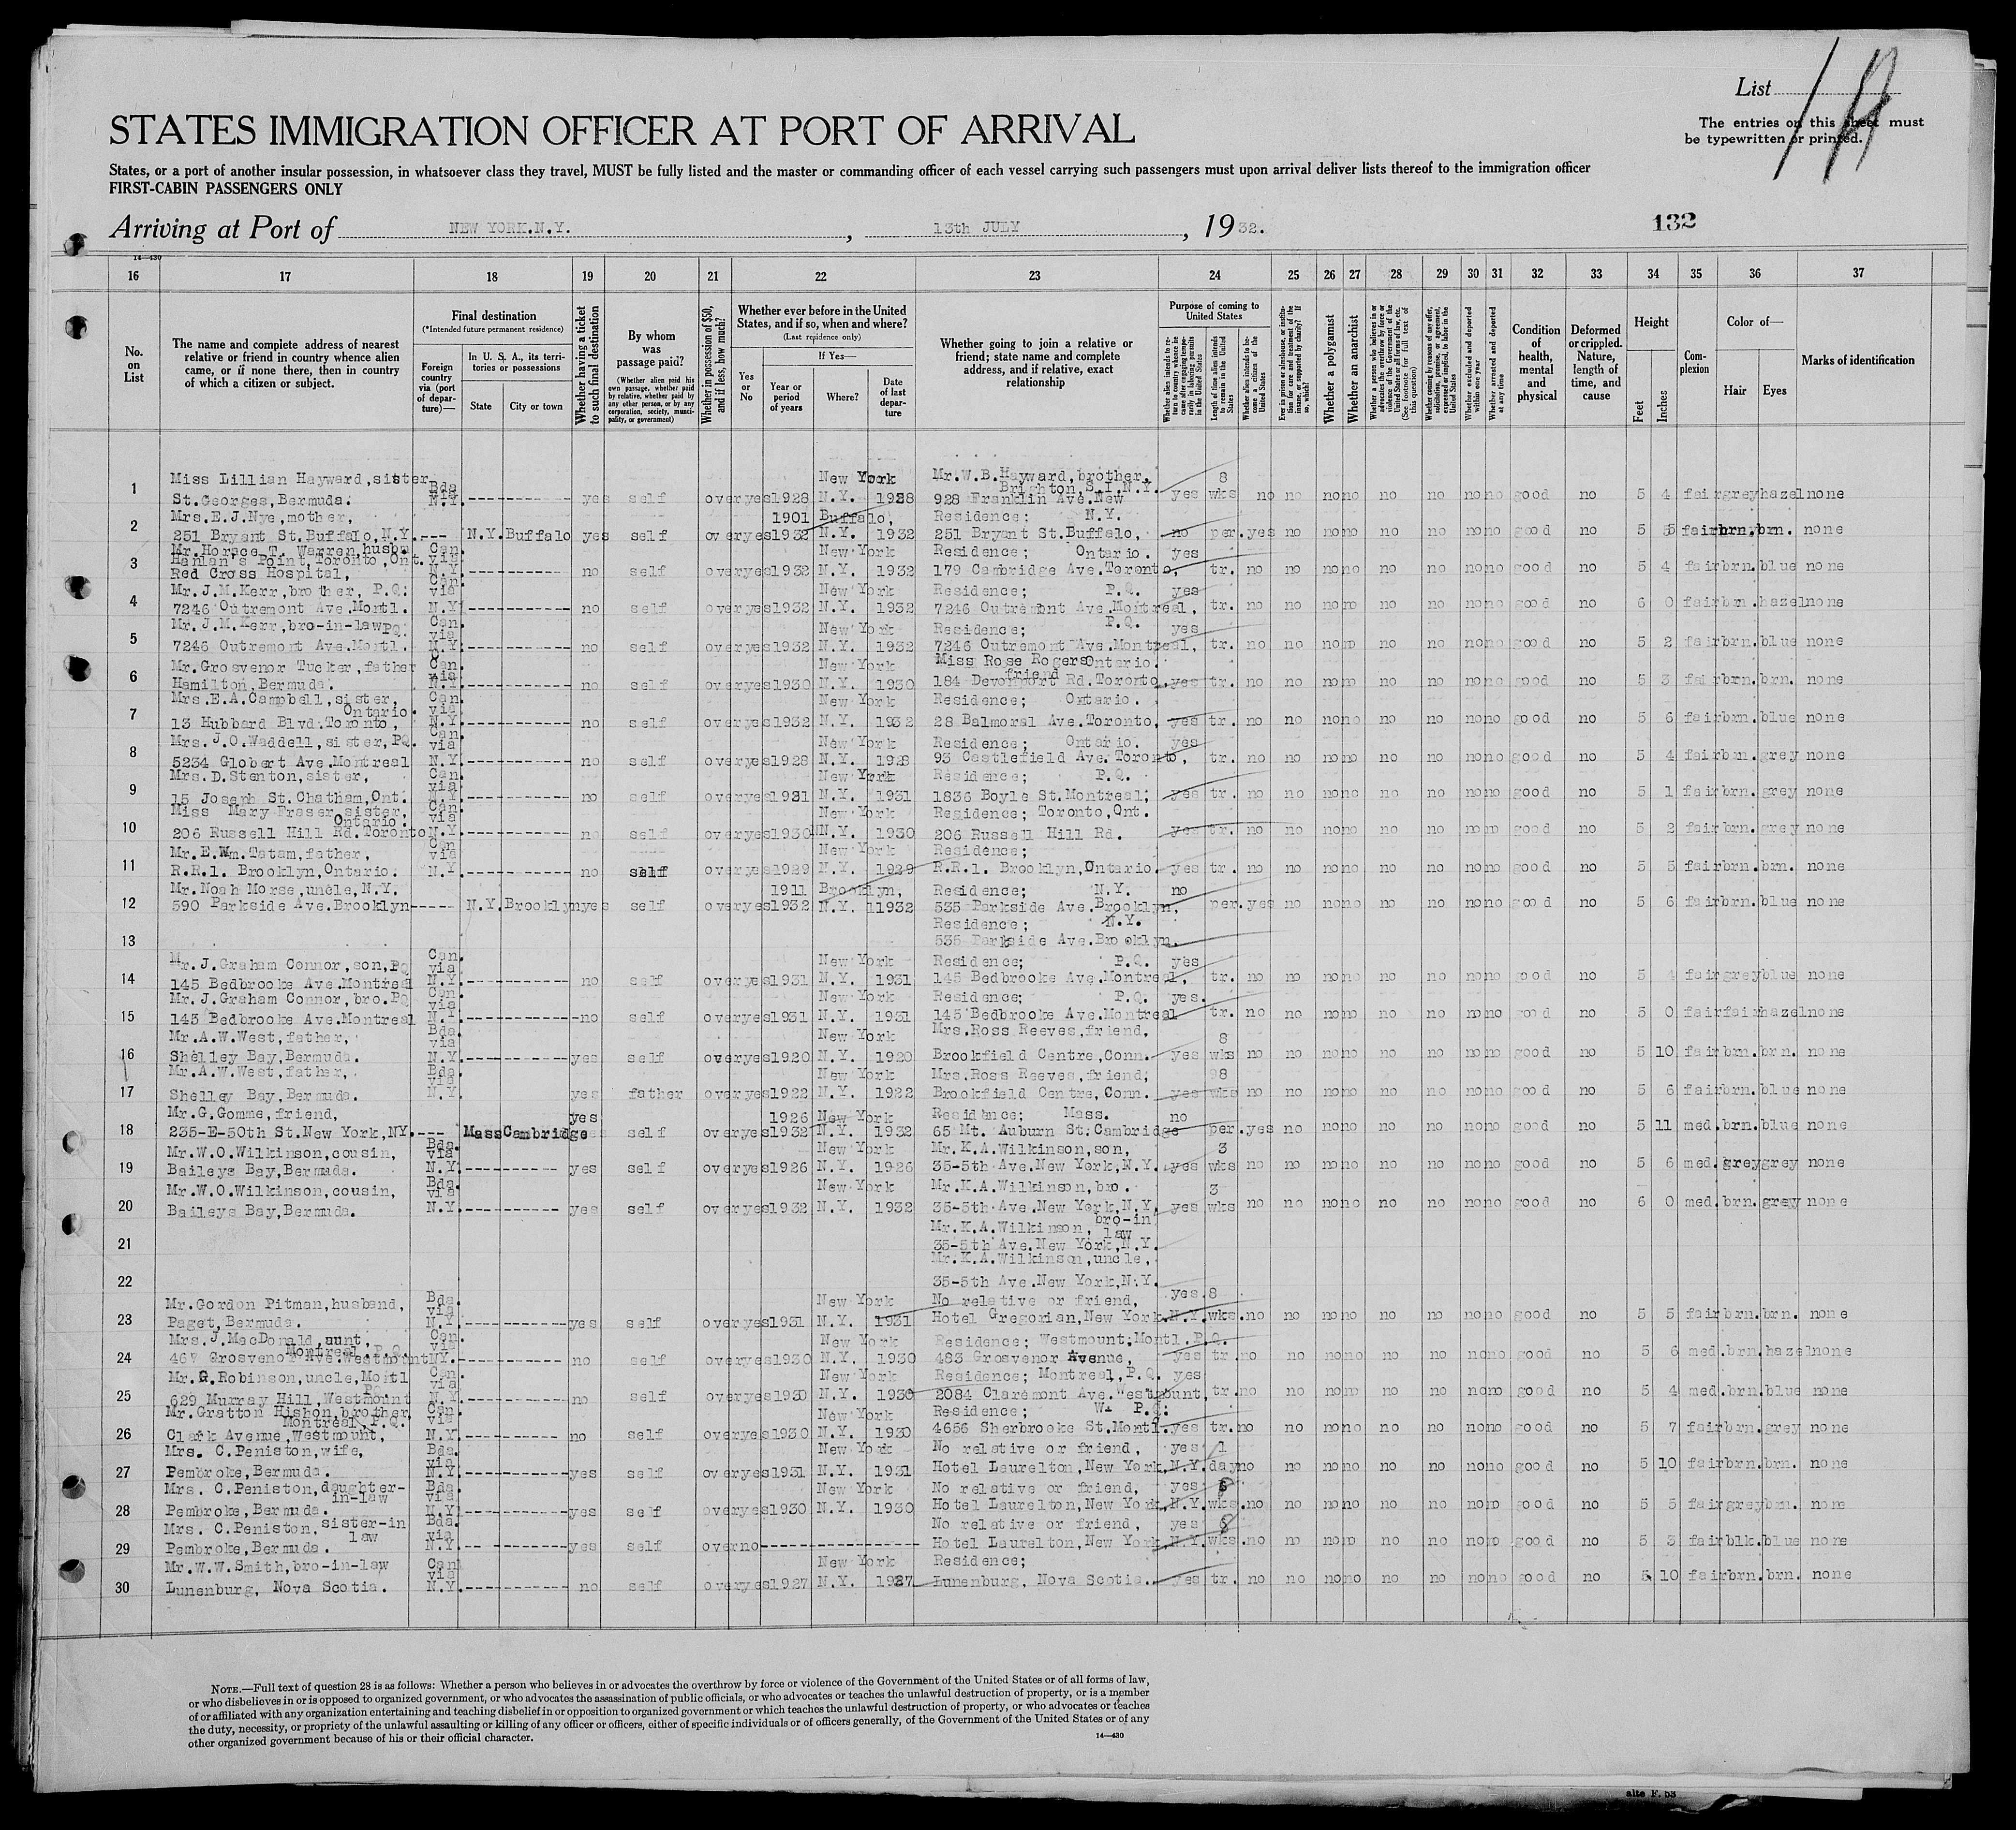 List
The entries on this sheet must
be typewritten or printed.
STATES IMMIGRATION OFFICER AT PORT OF ARRIVAL
States, or a port of another insular possession, in whatsoever class they travel, MUST be fully listed and the master or commanding officer of each vessel carrying such passengers must upon arrival deliver lists thereof to the immigration officer
FIRST-CABIN PASSENGERS ONLY
Arriving at Port of NEW YORK.N.Y. , 13th JULY , 1932.
132
14—430
16 17 18 19 20 21 22 23 24 25 26 27 28 29 30 31 32 33 34 35 36 37
No. on List
The name and complete address of nearest relative or friend in country whence alien came, or if none there, then in country of which a citizen or subject.
Final destination
(*Intended future permanent residence)
Foreign country via (port of departure)—
In U. S. A., its territories or possessions
State
City or town
Whether having a ticket to such final destination
By whom was passage paid?
(Whether alien paid his own passage, whether paid by relative, whether paid by any other person, or by any corporation, society, municipality, or government)
Whether in possession of $50, and if less, how much?
Whether ever before in the United States, and if so, when and where?
(Last residence only)
Yes or No
If Yes—
Year or period of years
Where?
Date of last departure
Whether going to join a relative or friend; state name and complete address, and if relative, exact relationship
Purpose of coming to United States
Whether alien intends to return to country whence he came after engaging temporarily in laboring pursuits in the United States
Length of time alien intends to remain in the United States
Whether alien intends to become a citizen of the United States
Ever in prison or almshouse, or institution for care and treatment of the insane, or supported by charity? If so, which?
Whether a polygamist
Whether an anarchist
Whether a person who believes in or advocates the overthrow by force or violence of the Government of the United States or all forms of law, etc. (See footnote for full text of this question)
Whether coming by reasons of any offer, solicitation, promise, or agreement, expressed or implied, to labor in the United States
Whether excluded and deported within one year
Whether arrested and deported at any time
Condition of health, mental and physical
Deformed or crippled. Nature, length of time, and cause
Height
Feet
Inches
Complexion
Color of—
Hair
Eyes
Marks of identification
1 Miss Lillian Hayward,sister St.Georges,Bermuda. Bda via N.Y. yes self over yes 1928 New York N.Y. 1928 Mr.W.B.Hayward,brother, 928 Franklin Ave.New Brighton,S.I.N.Y. yes 8 wks no no no no no no no no good no 5 4 fair grey hazel none
2 Mrs.E.J.Nye,mother, 251 Bryant St.Buffalo,N.Y.--- N.Y. Buffalo yes self over yes 1901 1932 Buffalo, N.Y. 1932 Residence; N.Y. 251 Bryant St.Buffalo, no per. yes no no no no no no no good no 5 5 fair brn. brn. none
3 Mr.Horace T. Warren,husbn Hanlan's Point,Toronto,Ont. Can. via N.Y. no self over yes 1932 New York N.Y. 1932 Residence; Ontario. 179 Cambridge Ave.Toronto, yes tr. no no no no no no no no good no 5 4 fair brn. blue none
4 Red Cross Hospital, Mr.J.M.Kerr,brother, P.Q. 7246 Outremont Ave.Montl. Can. via N.Y. no self over yes 1932 New York N.Y. 1932 Residence; P.Q. 7246 Outremont Ave.Montreal, yes tr. no no no no no no no no good no 6 0 fair brn. hazel none
5 Mr.J.M.Kerr,bro-in-law PQ. 7246 Outremont Ave.Montl. Can. via N.Y. no self over yes 1932 New York N.Y. 1932 Residence; P.Q. 7246 Outremont Ave.Montreal, yes tr. no no no no no no no no good no 5 2 fair brn. blue none
6 Mr.Grosvenor Tucker,father Hamilton,Bermuda. Can. via N.Y. no self over yes 1930 New York N.Y. 1930 Miss Rose Rogers friend Ontario. 184 Devonport Rd.Toronto, yes tr. no no no no no no no no good no 5 3 fair brn. brn. none
7 Mrs.E.A.Campbell,sister, 13 Hubbard Blvd.Toronto. Ontario. Can. via N.Y. no self over yes 1932 New York N.Y. 1932 Residence; Ontario. 28 Balmoral Ave.Toronto, yes tr. no no no no no no no no good no 5 6 fair brn. blue none
8 Mrs.J.O.Waddell,sister,PQ. 5234 Globert Ave.Montreal Can. via N.Y. no self over yes 1928 New York N.Y. 1928 Residence; Ontario. 93 Castlefield Ave.Toronto, yes tr. no no no no no no no no good no 5 4 fair brn. grey none
9 Mrs.D.Stenton,sister, 15 Joseph St.Chatham,Ont. Can. via N.Y. no self over yes 1931 New York N.Y. 1931 Residence; P.Q. 1836 Boyle St.Montreal; yes tr. no no no no no no no no good no 5 1 fair brn. grey none
10 Miss Mary Fraser,sister, 206 Russell Hill Rd.Toronto Ontario. Can. via N.Y. no self over yes 1930 New York N.Y. 1930 Residence; Toronto,Ont. 206 Russell Hill Rd. yes tr. no no no no no no no no good no 5 2 fair brn. grey none
11 Mr.E.Wm.Tatam,father, R.R.1. Brooklyn,Ontario. Can via N.Y. no self over yes 1929 New York N.Y. 1929 Residence; R.R.1. Brooklyn,Ontario. yes tr. no no no no no no no no good no 5 5 fair brn. brn. none
12 Mr.Noah Morse,uncle,N.Y. 590 Parkside Ave.Brooklyn----- N.Y. Brooklyn yes self over yes 1911 1932 Brooklyn, N.Y. 11932 Residence; N.Y. 535 Parkside Ave.Brooklyn, no per. yes no no no no no no no good no 5 6 fair brn. blue none
13 Residence; N.Y. 535 Parkside Ave.Brooklyn.
14 Mr.J.Graham Connor,son,PQ 145 Bedbrooke Ave.Montreal Can. via N.Y. no self over yes 1931 New York N.Y. 1931 Residence; P.Q. 145 Bedbrooke Ave.Montreal, yes tr. no no no no no no no no good no 5 4 fair grey blue none
15 Mr.J.Graham Connor,bro.PQ 145 Bedbrooke Ave.Montreal Can. via N.Y. no self over yes 1931 New York N.Y. 1931 Residence; P.Q. 145 Bedbrooke Ave.Montreal yes. tr. no no no no no no no no good no 5 0 fair fair hazel none
16 Mr.A.W.West,father, Shelley Bay,Bermuda. Bda. via N.Y. yes self over yes 1920 New York N.Y. 1920 Mrs.Ross Reeves,friend, Brookfield Centre,Conn. yes 8 wks no no no no no no no no good no 5 10 fair brn. brn. none
17 Mr.A.W.West,father, Shelley Bay,Bermuda. Bda. via N.Y. yes father over yes 1922 New York N.Y. 1922 Mrs.Ross Reeves,friend; Brookfield Centre,Conn. yes 98 wks no no no no no no no no good no 5 6 fair brn. blue none
18 Mr.G.Gomme,friend, 235-E-50th St.New York,NY.--- Mass Cambridge yes self over yes 1926 1932 New York N.Y. 1932 Residence; Mass. 65 Mt. Auburn St.Cambridge no per. yes no no no no no no no good no 5 11 med. brn. blue none
19 Mr.W.O.Wilkinson,cousin, Baileys Bay,Bermuda. Bda. via N.Y. yes self over yes 1926 New York N.Y. 1926 Mr.K.A.Wilkinson,son, 35-5th Ave.New York,N.Y. yes 3 wks no no no no no no no no good no 5 6 med. grey grey none
20 Mr.W.O.Wilkinson,cousin, Baileys Bay,Bermuda. Bda. via N.Y. yes self over yes 1932 New York N.Y. 1932 Mr.K.A.Wilkinson,bro. 35-5th Ave.New York,N.Y. yes 3 wks no no no no no no no no good no 6 0 med. brn. grey none
21 Mr.K.A.Wilkinson, bro-in law 35-5th Ave.New York,N.Y.
22 Mr.K.A.Wilkinson,uncle, 35-5th Ave.New York,N.Y.
23 Mr.Gordon Pitman,husband, Paget,Bermuda. Bda. via N.Y. yes self over yes 1931 New York N.Y. 1931 No relative or friend, Hotel Gregorian,New York.N.Y. yes 8 wks. no no no no no no no no good no 5 5 fair brn. brn. none
24 Mrs.J.MacDonald,aunt, 467 Grosvenor Ave.Westmount Montreal,P.Q. Can. via NY. no self over yes 1930 New York N.Y. 1930 Residence; Westmount;Montl.P.Q. 483 Grosvenor Avenue, yes tr. no no no no no no no no good no 5 6 med. brn. hazel none
25 Mr.G.Robinson,uncle,Montl 629 Murray Hill,Westmount PQ. Can. via N.Y. no self over yes 1930 New York N.Y. 1930 Residence; Montreal,P.Q. 2084 Claremont Ave.Westmount, yes tr. no no no no no no no no good no 5 4 med. brn. blue none
26 Mr.Gratton Hishon,brother Clark Avenue,Westmount, Montreal,P.Q. Can. via N.Y. no self over yes 1930 New York N.Y. 1930 Residence; P.Q. 4656 Sherbrooke St.Montl. yes tr. no no no no no no no no good no 5 7 fair brn. grey none
27 Mrs. C.Peniston,wife, Pembroke,Bermuda. Bda. via N.Y. yes self over yes 1931 New York N.Y. 1931 No relative or friend, Hotel Laurelton,New York,N.Y. yes 1 day no no no no no no no no good no 5 10 fair brn. brn. none
28 Mrs. C.Peniston,daughter-in-law Pembroke,Bermuda. Bda. via N.Y. yes self over yes 1930 New York N.Y. 1930 No relative or friend, Hotel Laurelton,New York,N.Y. yes wks. no no no no no no no no good no 5 5 fair grey brn. none
29 Mrs. C.Peniston,sister-in law Pembroke,Bermuda. Bda. via N.Y. yes self over no No relative or friend, Hotel Laurelton,New York,N.Y. yes wks. no no no no no no no no good no 5 3 fair blk. blue none
30 Mr.W.W.Smith,bro-in-law Lunenburg, Nova Scotia. Can via N.Y. no self over yes 1927 New York N.Y. 1927 Residence; Lunenburg, Nova Scotia. yes tr. no no no no no no no no good no 5 10 fair brn. brn. none
NOTE.—Full text of question 28 is as follows: Whether a person who believes in or advocates the overthrow by force or violence of the Government of the United States or of all forms of law,
or who disbelieves in or is opposed to organized government, or who advocates the assassination of public officials, or who advocates or teaches the unlawful destruction of property, or is a member
of or affiliated with any organization entertaining and teaching disbelief in or opposition to organized government or which teaches the unlawful destruction of property, or who advocates or teaches
the duty, necessity, or propriety of the unlawful assaulting or killing of any officer or officers, either of specific individuals or of officers generally, of the Government of the United States or of any
other organized government because of his or their official character.
14—430